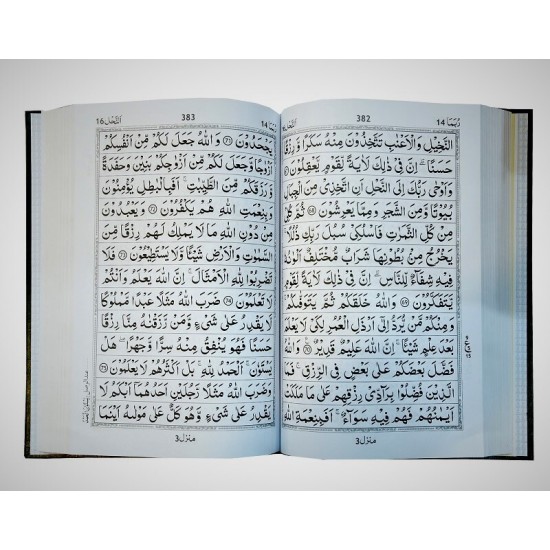 رُبَمَا 14
382
اَلنَّحْل 16
النَّخِيْلِ وَالْاَعْنٰبِ تَتَّخِذُوْنَ مِنْهُ سَكَرًا وَّرِزْقًا
حَسَنًا ؕ اِنَّ فِيْ ذٰلِكَ لَاٰيَةً لِّقَوْمٍ يَّعْقِلُوْنَ ﴿67﴾
وَاَوْحٰى رَبُّكَ اِلَى النَّحْلِ اَنِ اتَّخِذِيْ مِنَ الْجِبَالِ
بُيُوْتًا وَّمِنَ الشَّجَرِ وَمِمَّا يَعْرِشُوْنَ ﴿68﴾ ثُمَّ كُلِيْ
مِنْ كُلِّ الثَّمَرٰتِ فَاسْلُكِيْ سُبُلَ رَبِّكِ ذُلُلًا ؕ
يَخْرُجُ مِنْۢ بُطُوْنِهَا شَرَابٌ مُّخْتَلِفٌ اَلْوَانُهٗ
فِيْهِ شِفَآءٌ لِّلنَّاسِ ؕ اِنَّ فِيْ ذٰلِكَ لَاٰيَةً لِّقَوْمٍ
يَّتَفَكَّرُوْنَ ﴿69﴾ وَاللّٰهُ خَلَقَكُمْ ثُمَّ يَتَوَفّٰىكُمْ
وَمِنْكُمْ مَّنْ يُّرَدُّ اِلٰٓى اَرْذَلِ الْعُمُرِ لِكَيْ لَا يَعْلَمَ
بَعْدَ عِلْمٍ شَيْـًٔا ؕ اِنَّ اللّٰهَ عَلِيْمٌ قَدِيْرٌ ﴿70﴾ وَاللّٰهُ
فَضَّلَ بَعْضَكُمْ عَلٰى بَعْضٍ فِي الرِّزْقِ ۚ فَمَا
الَّذِيْنَ فُضِّلُوْا بِرَآدِّيْ رِزْقِهِمْ عَلٰى مَا مَلَكَتْ
اَيْمَانُهُمْ فَهُمْ فِيْهِ سَوَآءٌ ؕ اَفَبِنِعْمَةِ اللّٰهِ
منزل 3
رُبَمَا 14
383
اَلنَّحْل 16
يَجْحَدُوْنَ ﴿71﴾ وَاللّٰهُ جَعَلَ لَكُمْ مِّنْ اَنْفُسِكُمْ
اَزْوَاجًا وَّجَعَلَ لَكُمْ مِّنْ اَزْوَاجِكُمْ بَنِيْنَ وَحَفَدَةً
وَّرَزَقَكُمْ مِّنَ الطَّيِّبٰتِ ؕ اَفَبِالْبَاطِلِ يُؤْمِنُوْنَ
وَبِنِعْمَتِ اللّٰهِ هُمْ يَكْفُرُوْنَ ﴿72﴾ وَيَعْبُدُوْنَ
مِنْ دُوْنِ اللّٰهِ مَا لَا يَمْلِكُ لَهُمْ رِزْقًا مِّنَ
السَّمٰوٰتِ وَالْاَرْضِ شَيْـًٔا وَّلَا يَسْتَطِيْعُوْنَ ﴿73﴾ فَلَا
تَضْرِبُوْا لِلّٰهِ الْاَمْثَالَ ؕ اِنَّ اللّٰهَ يَعْلَمُ وَاَنْتُمْ
لَا تَعْلَمُوْنَ ﴿74﴾ ضَرَبَ اللّٰهُ مَثَلًا عَبْدًا مَّمْلُوْكًا
لَّا يَقْدِرُ عَلٰى شَيْءٍ وَّمَنْ رَّزَقْنٰهُ مِنَّا رِزْقًا
حَسَنًا فَهُوَ يُنْفِقُ مِنْهُ سِرًّا وَّجَهْرًا ؕ هَلْ
يَسْتَوٗنَ ؕ اَلْحَمْدُ لِلّٰهِ ؕ بَلْ اَكْثَرُهُمْ لَا يَعْلَمُوْنَ ﴿75﴾
وَضَرَبَ اللّٰهُ مَثَلًا رَّجُلَيْنِ اَحَدُهُمَآ اَبْكَمُ لَا
يَقْدِرُ عَلٰى شَيْءٍ وَّهُوَ كَلٌّ عَلٰى مَوْلٰىهُ ۙ اَيْنَمَا
منزل 3